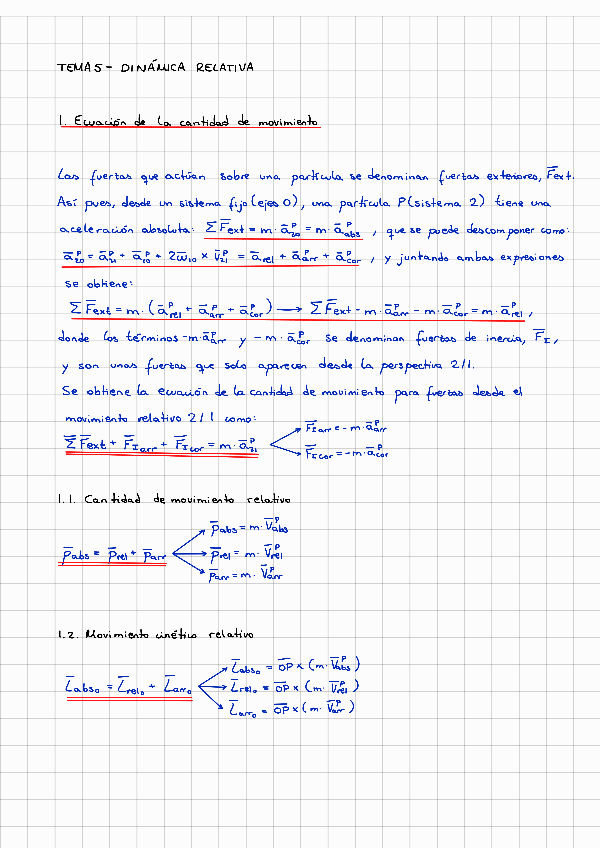 TEMA 5 - DINÁMICA RELATIVA
1. Ecuación de la cantidad de movimiento
Las fuerzas que actúan sobre una partícula se denominan fuerzas exteriores, F̅ext.
Así pues, desde un sistema fijo (ejes 0), una partícula P (sistema 2) tiene una
aceleración absoluta: ΣF̅ext = m · a̅₂₀ᴾ = m · a̅ᴾabs , que se puede descomponer como:
a̅₂₀ᴾ = a̅₂₁ᴾ + a̅₁₀ᴾ + 2ω̅₁₀ × v̅₂₁ᴾ = a̅ᴾrel + a̅ᴾarr + a̅ᴾcor , y juntando ambas expresiones
se obtiene:
ΣF̅ext = m · (a̅ᴾrel + a̅ᴾarr + a̅ᴾcor) → ΣF̅ext - m · a̅ᴾarr - m · a̅ᴾcor = m · a̅ᴾrel ,
donde los términos -m · a̅ᴾarr y - m · a̅ᴾcor se denominan fuerzas de inercia, F̅I,
y son unas fuerzas que solo aparecen desde la perspectiva 2/1.
Se obtiene la ecuación de la cantidad de movimiento para fuerzas desde el
movimiento relativo 2/1 como:
ΣF̅ext + F̅I arr + F̅I cor = m · a̅₂₁ᴾ
F̅I arr = - m · a̅ᴾarr
F̅I cor = - m · a̅ᴾcor
1.1. Cantidad de movimiento relativo
p̅abs = p̅rel + p̅arr
p̅abs = m · v̅ᴾabs
p̅rel = m · v̅ᴾrel
p̅arr = m · v̅ᴾarr
1.2. Movimiento cinético relativo
L̅abs₀ = L̅rel₀ + L̅arr₀
L̅abs₀ = O̅P̅ × (m · v̅ᴾabs)
L̅rel₀ = O̅P̅ × (m · v̅ᴾrel)
L̅arr₀ = O̅P̅ × (m · v̅ᴾarr)